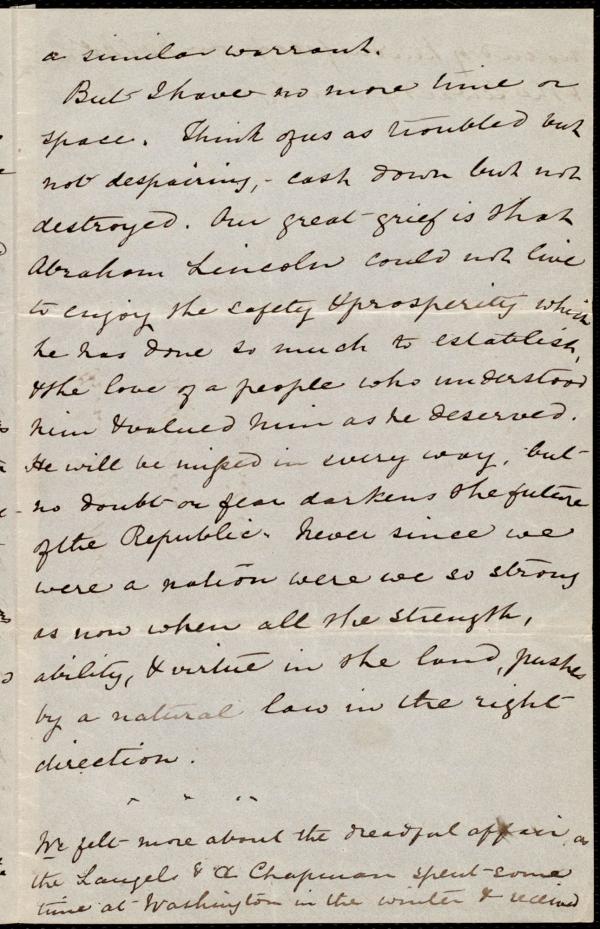 a similar warrant.
But I have no more time or
space. Think of us as troubled but
not despairing, - cast down but not
destroyed. Our great grief is that
Abraham Lincoln could not live
to enjoy the safety & prosperity which
he has done so much to establish,
& the love of a people who understood
him & valued him as he deserved.
He will be missed in every way, but
no doubt or fear darkens the future
of the Republic. Never since we
were a nation were we so strong
as now when all the strength,
ability, & virtue in the land, pushes
by a natural law in the right
direction.
We felt more about the dreadful affair, as
the Laugels & A Chapman spent some
time at Washington in the winter & received